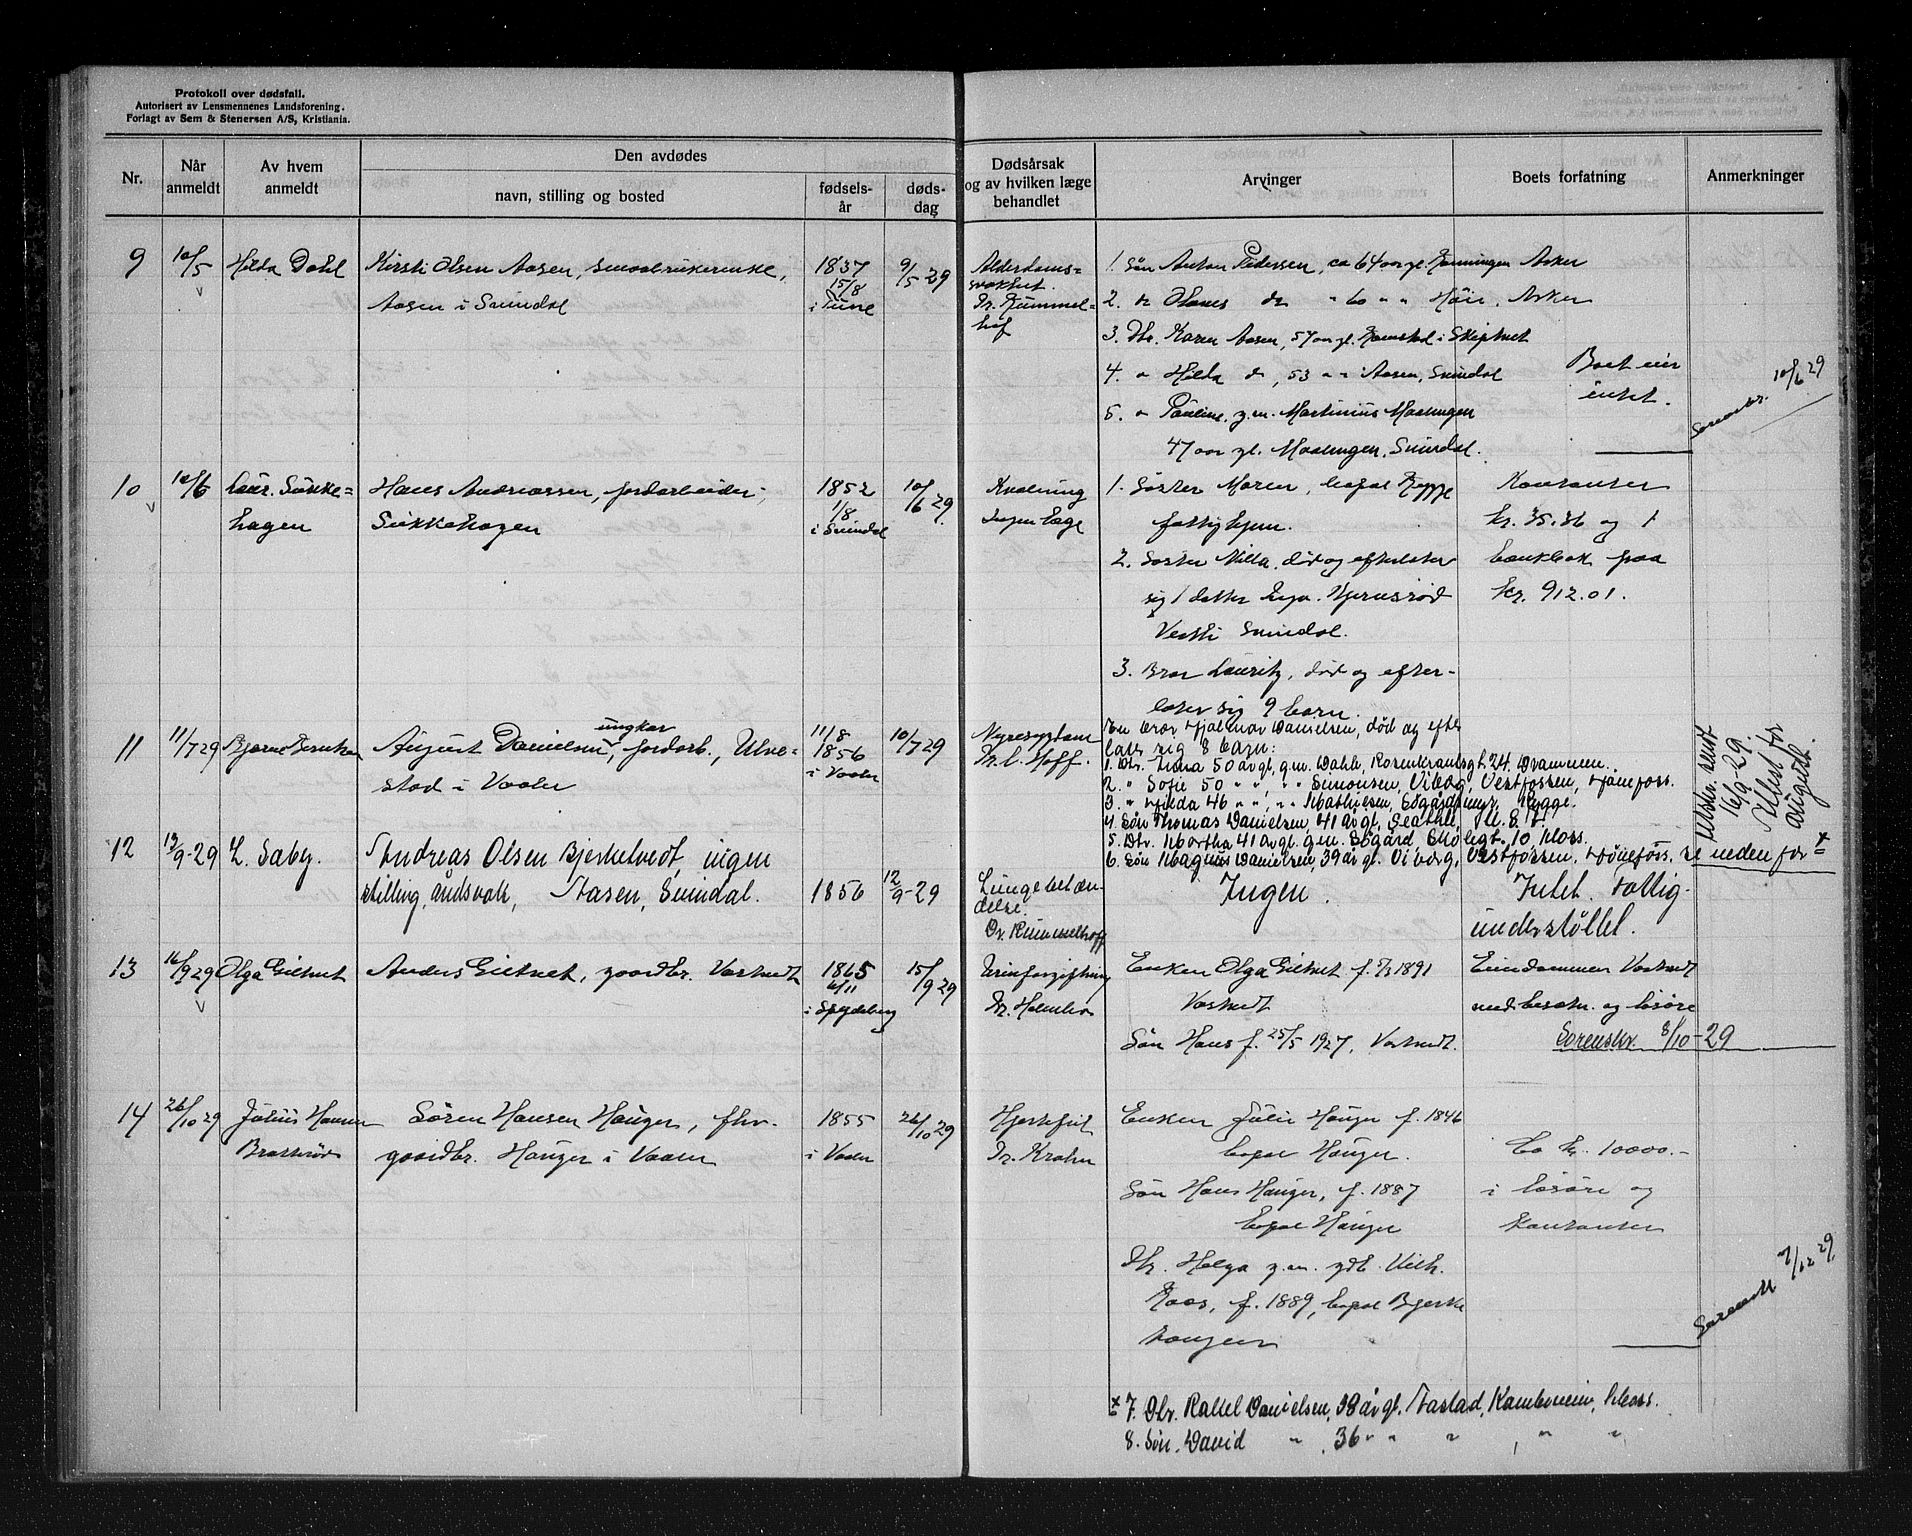 Protokoll over dødsfall.
Autorisert av Lensmennenes Landsforening.
Forlagt av Sem & Stenersen A/S, Kristiania.
Nr.
Når anmeldt
Av hvem anmeldt
Den avdødes
navn, stilling og bosted
fødsels-år
døds-dag
Dødsårsak og av hvilken læge behandlet
Arvinger
Boets forfatning
Anmerkninger
9
10/5
Hilda Dahl
Kirsti Olsen Aasen, smaabrukerenke,
Aasen i Svindal
1837
15/8
i Tune
9/5 29
Alderdoms-
svakhet.
Dr. Rummel-
hof
1. Søn Anton Pedersen, ca 64 aar gl. Asker
2. do do " 60 " " Høie, Asker
3. Dtr. Karen Aasen, 57 aar gl. i Skiptvet
4. " Hilda do, 53 " " Aasen, Svindal
5. " Pauline, g.m. Martinius Maalingen
47 aar gl. Maalingen, Svindal.
Boet eier
intet.
10/6 29
10
10/6
Laur. Sukke-
hagen
Hans Andreassen, jordarbeider,
Sukkehagen
1852
1/8
i Svindal
10/6 29
Kvælning
Ingen læge
1. Søster Maren, bopæl Rygge
fattighjem.
2. Søster Milla, død og efterlater
sig 1 datter
Svindal.
3. Bror Lauritz, død og efter-
later sig 9 barn.
Kontanter
kr. 35.36 og 1
bankbok paa
kr. 912.01.
11
11/7 29
August Danielsen, ungkar jordarb., Ulve-
stad i Vaaler
11/8
1856
i Vaaler
10/7 29
Nyresygdom
Dr. C. Hoff.
En bror Hjalmar Danielsen, død og efter
later sig 8 barn:
1. Dtr. 50 år gl, g.m. Dahl, Rosenkrantzgt. 24. Drammen.
2. " Sofie 50 " " , " " Simonsen, Viborg, Vestfossen, Hønefoss.
3. " Hilda 46 " " , " " Mathiesen, Rygge.
4. Søn Thomas Danielsen, 41 år gl, Seattle, U.S.A.
5. Dtr. Martha 41 år gl. g.m. Bøgård, 10 Moss.
6. Søn Magnus Danielsen, 39 år gl. Viborg, Vestfossen, Hønefoss. se nedenfor x
Utskr. sendt
16/9-29.
12
13/9-29
L. Sæby.
Andreas Olsen Bjerketvedt, ingen
stilling, åndsvak, Aasen, Svindal.
1856
12/9-29
Lungebetæn-
delse.
Dr. Rummelhoff
Ingen.
Intet. Fattig-
understøttet.
13
16/9 29
Olga Gietvet
Anders Gietvet, gaardbr. Vastvedt
1865
6/11
i Spydeberg
15/9 29
Urinforgiftning
Dr. Holmbo
Enken Olga Gietvet f. 1891
Vastvedt
Søn Hans f. 25/5 1927, Vastvedt.
Eiendommen Vastvedt
med besætn. og løsøre
Sorenskr. 8/10-29
14
26/10 29
Julius Hansen
Braterød
Søren Hansen Hauger, fhv.
gaardbr. Hauger i Vaaler
1855
i Vaaler
26/10 29
Hjertefeil
Dr. Krohn
Enken Julie Hauger f. 1846
bopæl Hauger.
Søn Hans Hauger, f. 1887
bopæl Hauger
Dtr. Helga g.m. gdb. Vilh.
Roos, f. 1889, bopæl Bjerke
haugen
Ca kr. 10000.-
i løsøre og
kontanter
/12 29
x 7. Dtr. Rakel Danielsen, 38 år gl. Aastad, Kambo, Moss.
8. Søn David " , 36 " " " , " "